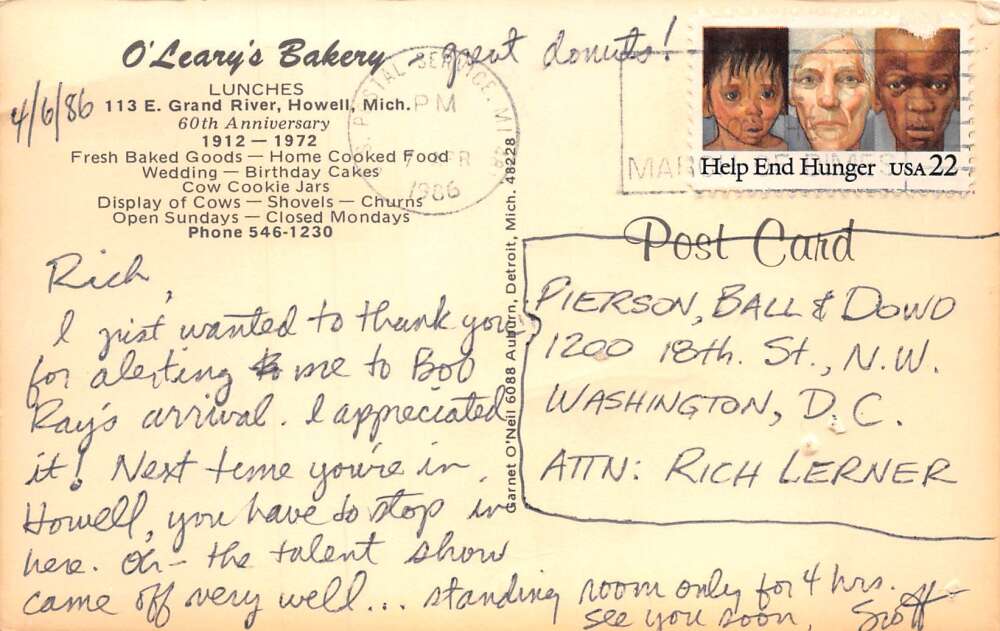 O'Leary's Bakery - great donuts!
LUNCHES
4/6/86
113 E. Grand River, Howell, Mich.
60th Anniversary
1912 — 1972
Fresh Baked Goods — Home Cooked Food
Wedding — Birthday Cakes
Cow Cookie Jars
Display of Cows — Shovels — Churns
Open Sundays — Closed Mondays
Phone 546-1230
Rich,
I just wanted to thank you
for alerting me to Bob
Ray's arrival. I appreciated
it! Next time you're in
Howell, you have to stop in
here. Oh - the talent show
came off very well... standing room only for 4 hrs.
see you soon, Scott
Garnet O'Neil 6088 Auburn, Detroit, Mich. 48228
POSTAL SERVICE, MI
PM
7 APR
1986
Help End Hunger USA 22
Post Card
PIERSON, BALL & DOWD
1200 18th. St., N.W.
WASHINGTON, D.C.
ATTN: RICH LERNER